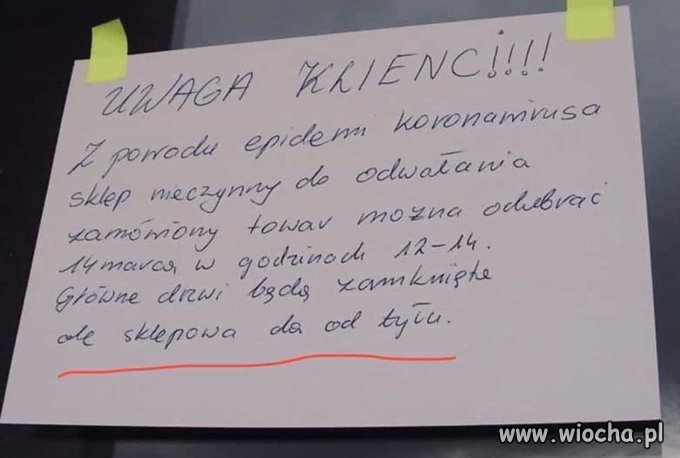 UWAGA KLIENCI!!!!
Z powodu epidemi koronawirusa
sklep nieczynny do odwołania
zamówiony towar można odebrać
14 marca w godzinach 12-14.
Główne drzwi będą zamknięte
ale sklepowa da od tyłu.
www.wiocha.pl